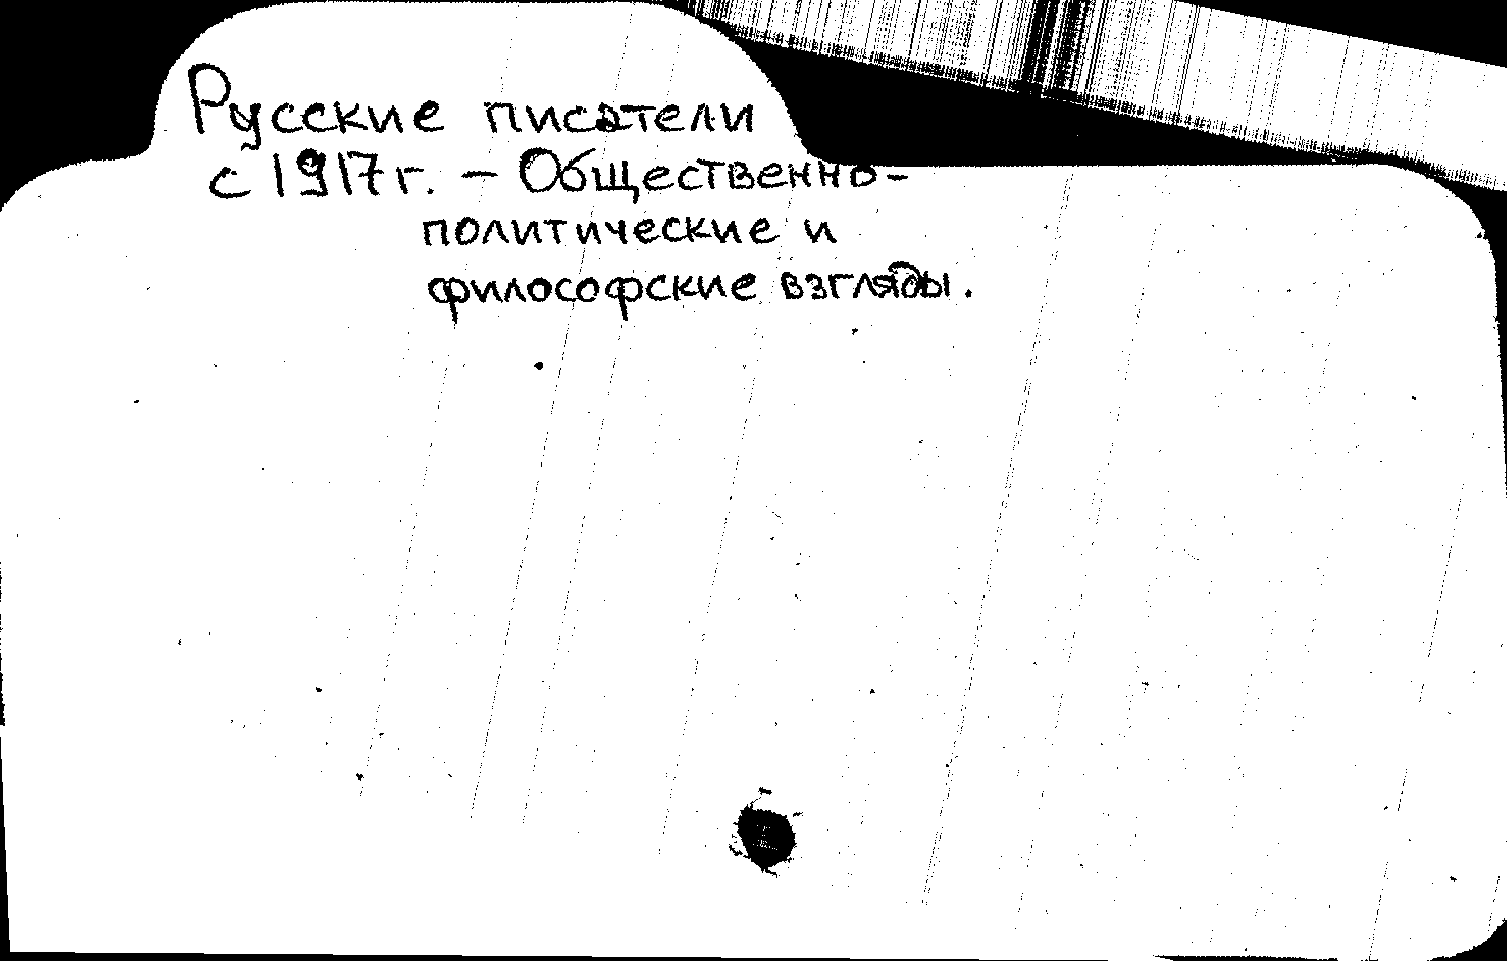 Русские писатели
с 1917 г. – Общественно-
политические и
философские взгляды.